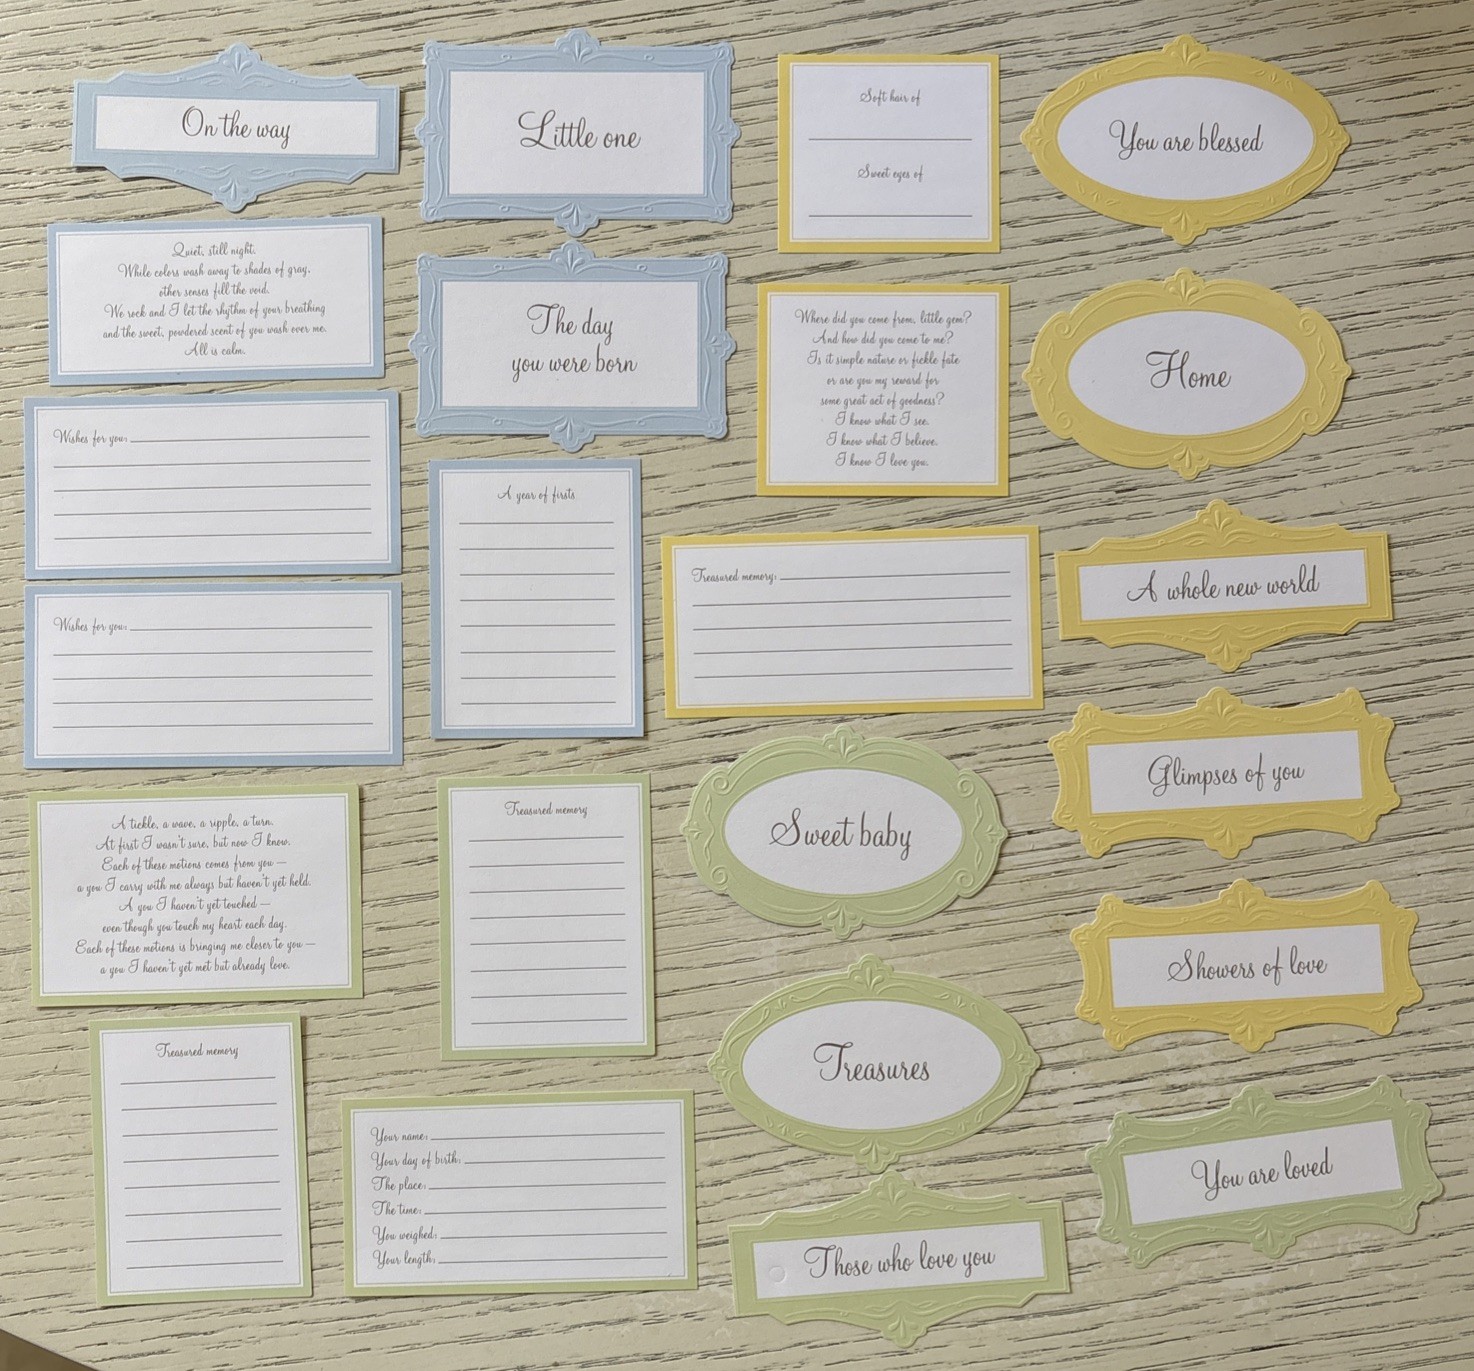 On the way
Little one
Soft hair of
Sweet eyes of
You are blessed
Quiet, still night.
While colors wash away to shades of gray,
other senses fill the void.
We rock and I let the rhythm of your breathing
and the sweet, powdered scent of you wash over me.
All is calm.
The day
you were born
Where did you come from, little gem?
And how did you come to me?
Is it simple nature or fickle fate
or are you my reward for
some great act of goodness?
I know what I see.
I know what I believe.
I know I love you.
Home
Wishes for you:
A year of firsts
Treasured memory:
A whole new world
Wishes for you:
Glimpses of you
A tickle, a wave, a ripple, a turn.
At first I wasn't sure, but now I know.
Each of these motions comes from you —
a you I carry with me always but haven't yet held.
A you I haven't yet touched —
even though you touch my heart each day.
Each of these motions is bringing me closer to you —
a you I haven't yet met but already love.
Treasured memory
Sweet baby
Showers of love
Treasured memory
Your name:
Your day of birth:
The place:
The time:
You weighed:
Your length:
Treasures
You are loved
Those who love you